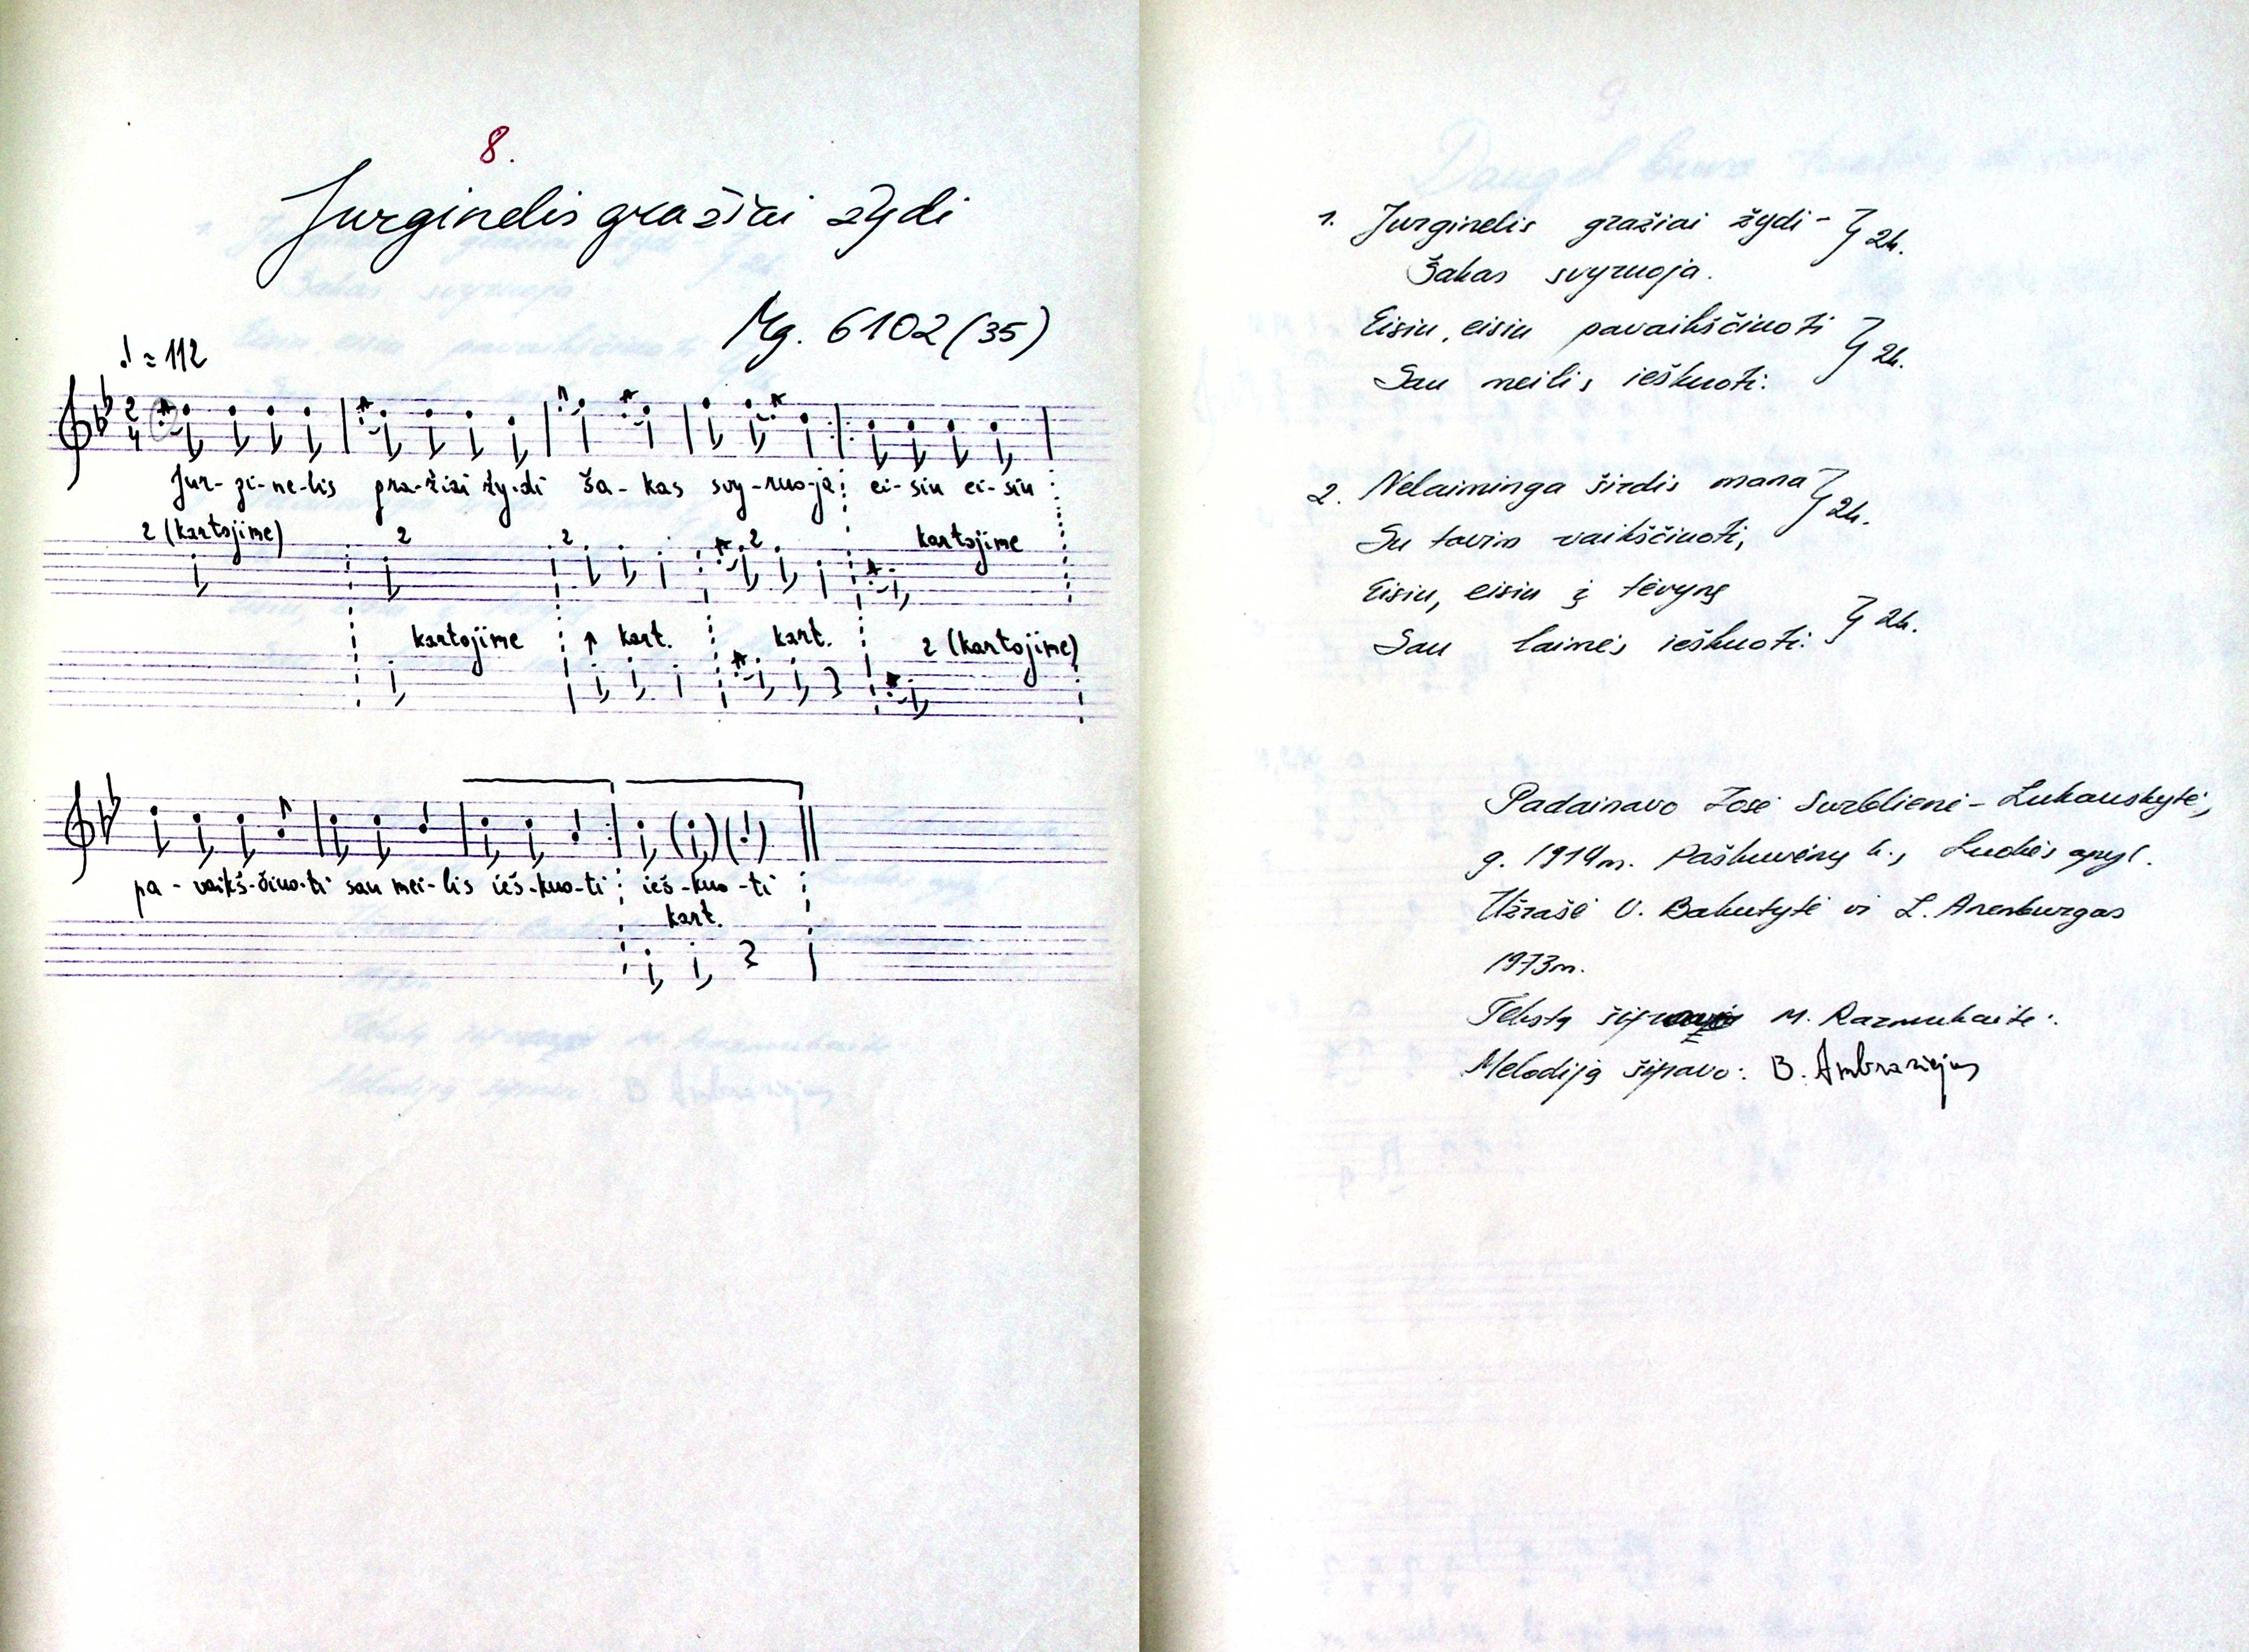 8.
Jurginelis gražiai žydi
Mg. 6102 (35)
♩ = 112
2/4
Jur-gi-ne-lis gra-žiai žy-di ša-kas svy-ruo-ja ei-siu ei-siu
2 (kartojime) 2 2 2 kartojime
kartojime kart. kart. 2 (kartojime)
pa-vaikš-čiuo-ti sau mei-lis ieš-kuo-ti ieš-kuo-ti
kart.
1. Jurginelis gražiai žydi- } 2k.
Šakas svyruoja.
Eisiu, eisiu pavaikščiuoti } 2k.
Sau meilis ieškuoti.
2. Nelaiminga širdis mana } 2k.
Su tavim vaikščiuoti,
Eisiu, eisiu į tėvynę
Sau laimės ieškuoti. } 2k.
Padainavo Zosė Surblienė-Lukauskytė,
g. 1914m. Paškuvėnų k., Luokės apyl.
Užrašė V. Bakutytė ir L. Arenburgas
1973m.
Tekstą M. Razmukaitė.
Melodiją šifravo: B. Ambraziejus